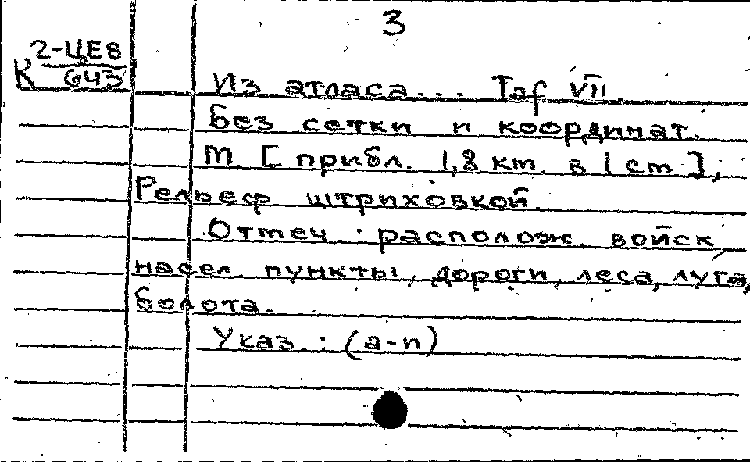 3
2-ЦЕ8
К 643
Из атласа... Taf VII.
Без сетки и координат.
М [прибл. 1,8 km в 1 cm],
Рельеф штриховкой.
Отмеч.: располож. войск,
насел. пункты, дороги, леса, луга,
болота.
Указ.: (a-n)